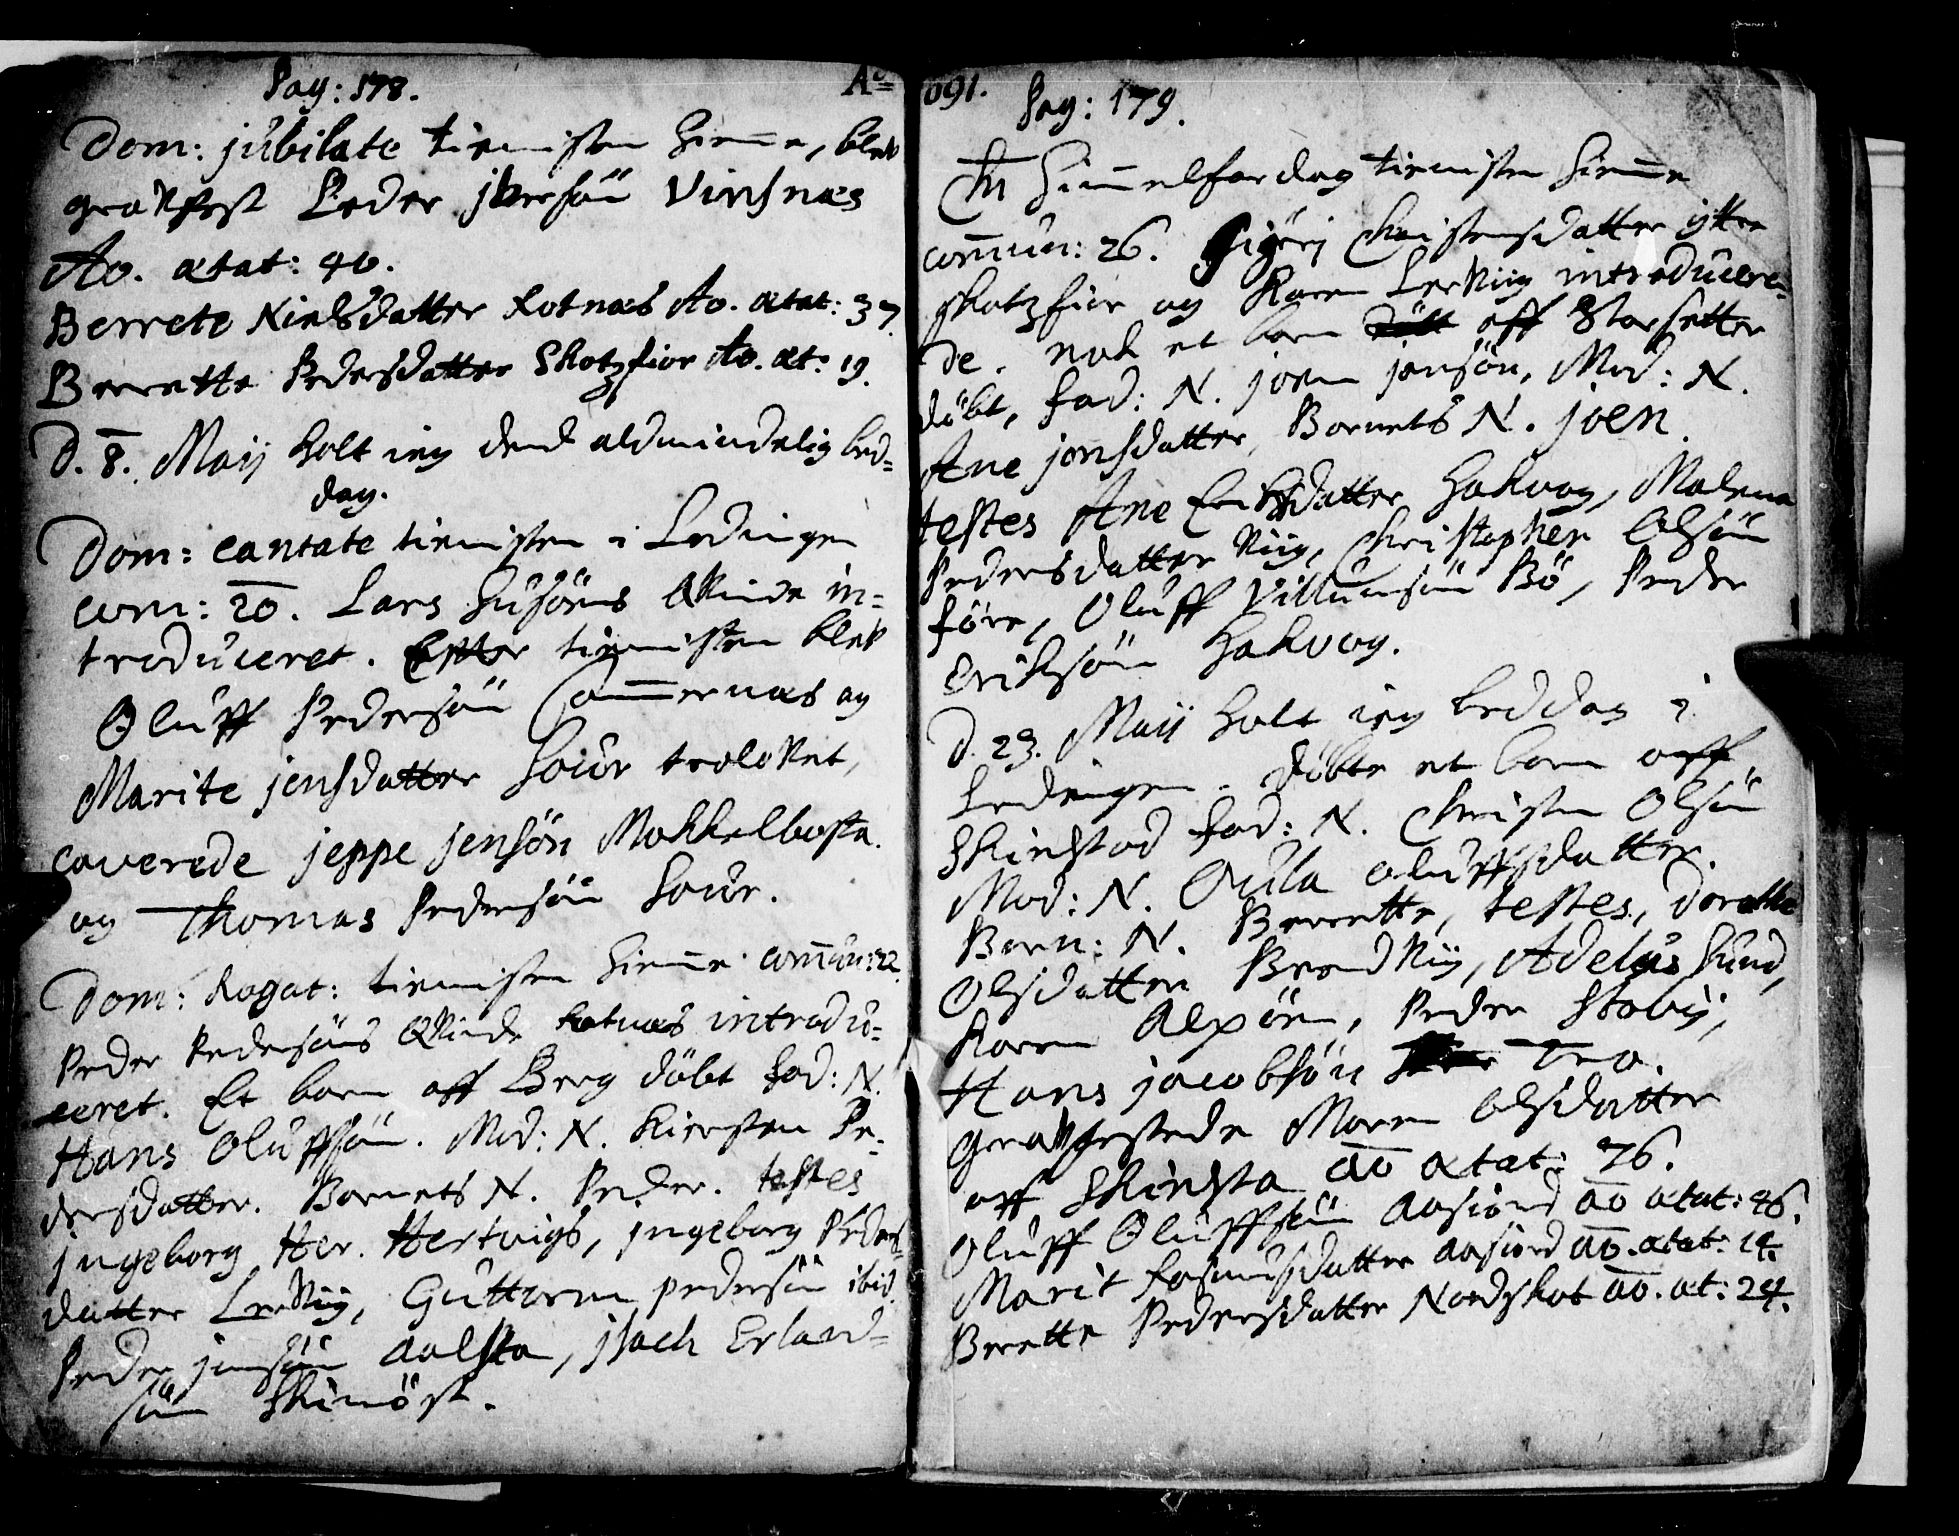 Pag: 178. Aº
Dom: jubilate tienisten hieme, blef
grafest Peder jversön Vinsnæs
Ao. ætat: 40.
Berrete Nielsdatter Rotnæs Ao. ætat: 37.
Berrette Pedersdatter Skotzfior Ao. æt: 19.
D. 8. Maij holt ieg dend aldmindelig bed=
dag.
Dom: cantate tienisten i Lødingen
com: 20. Lars Qvinde in=
troduceret. Efter tienisten blef
Oluff Pedersön og
Marite jensdatter troloket,
caverede jeppe jensön
og Thomas Pedersön
Dom: Rogat: tienisten hieme commun: 22
Peder Pedersöns Qvinde Rotnæs introdu=
ceret. Et barn aff Berg döbt Fad: N.
Hans Oluffsön. Mod: N. Kiersten Pe=
dersdatter. Barnets N. Peder. testes
Ingeborg Her. Hertvigs, Ingeborg Peders=
datter Guttorm pedersön ibid.
Peder jensön Aalsta, jsach Erland=
sön
691. Pag: 179.
Chri himmelfardag tienisten hieme
commun: 26. Christensdatter ytter
skotzfior og Karen introducere=
de. nok et barn aff Storsetter
döbt, Fad: N. joen jonsön, Mod: N.
Ane jonsdatter, Barnets N. joen.
testes Ane Hakvog, Malena
Pedersdatter Christopher Olsön
Före, Oluff Villumsön Bö, Peder
Eriksön Hakvog.
D. 23. Maij holt ieg beddag i
Lødingen. Döbte et barn aff
Skiestad Fad: N. Christen Olsön
Mod: N. Gula oluffsdatter.
Barn: N. Berrette, testes, dorothe
Olsdatter Adelus Sund,
Karen Peder
Hans jacobsön
grafestede Maren Olsdatter
aff ao ætat: 76.
Oluff Oluffsön ao ætat: 46.
Marit Rasmusdatter ao. ætat: 14.
Berette Pedersdatter Nordskot ao. æt: 24.